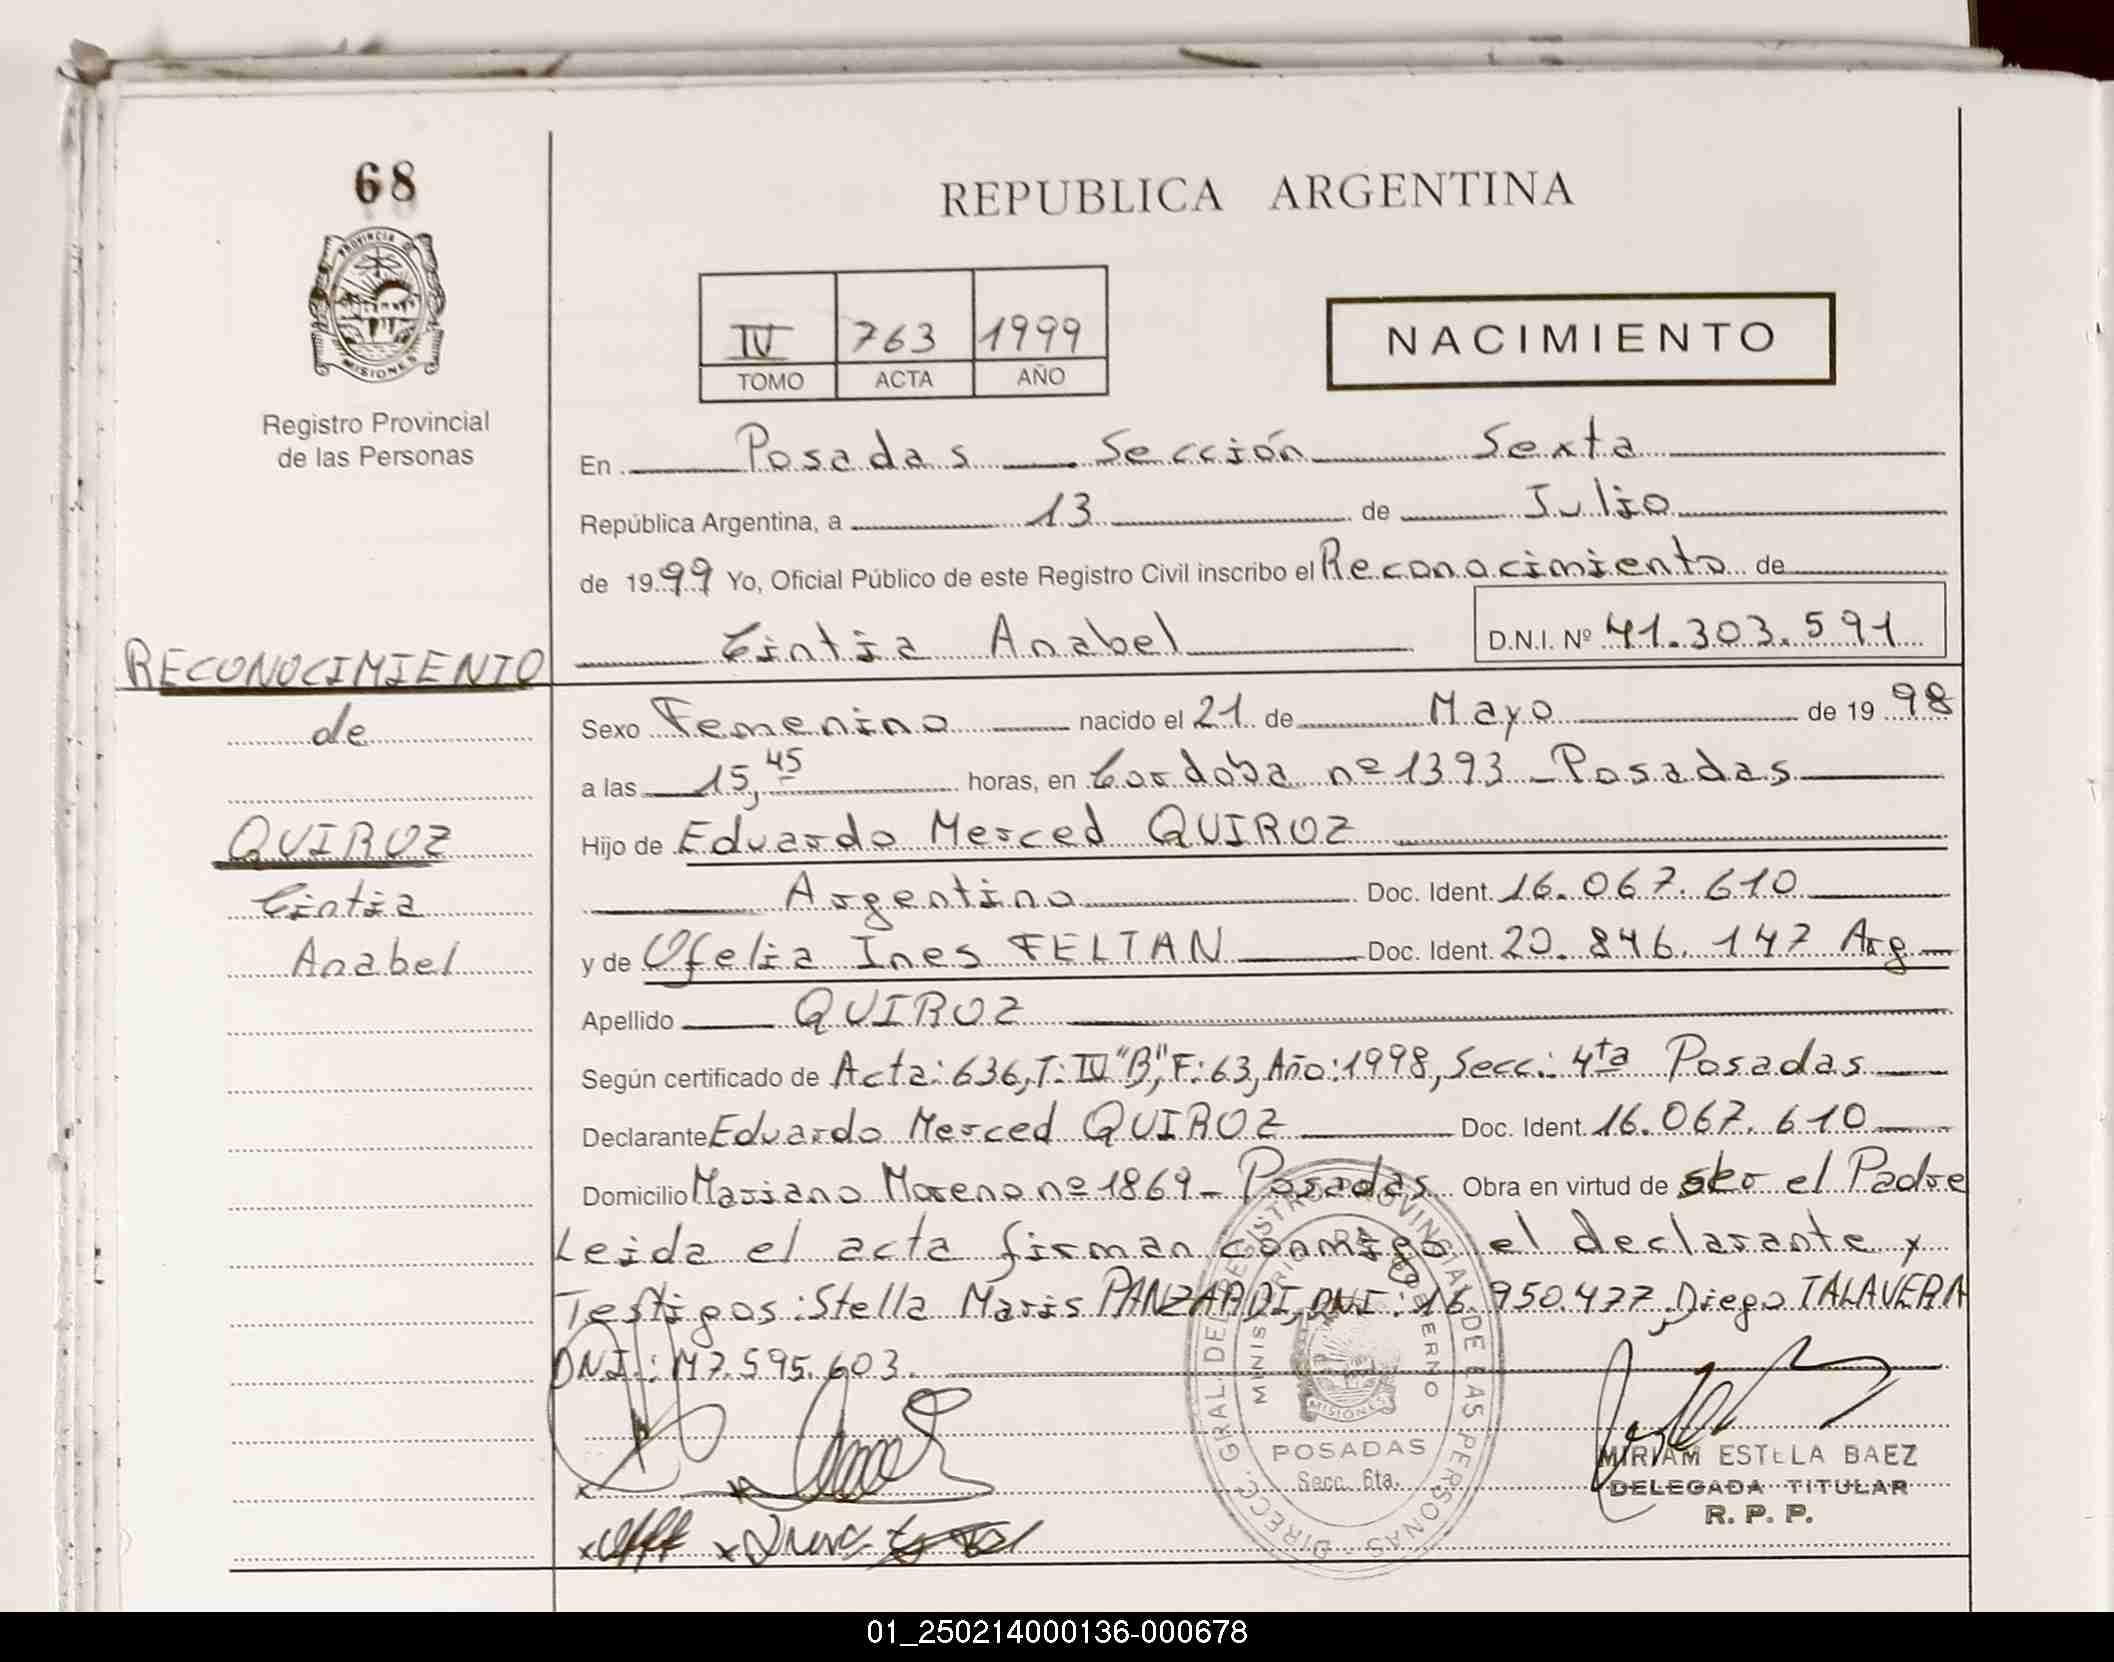 68
REPUBLICA ARGENTINA
PROVINCIA DE MISIONES
IV 763 1999
TOMO ACTA AÑO
NACIMIENTO
Registro Provincial
de las Personas
En Posadas Sección Sexta
República Argentina, a 13 de Julio
de 1999 Yo, Oficial Público de este Registro Civil inscribo el Reconocimiento de
Cintia Anabel D.N.I. Nº 41.303.591
RECONOCIMIENTO
de
QUIROZ
Cintia
Anabel
Sexo Femenino nacido el 21 de Mayo de 1998
a las 15,45 horas, en Cordoba nº 1393 - Posadas
Hijo de Eduardo Merced QUIROZ
Argentino Doc. Ident. 16.067.610
y de Ofelia Ines FELTAN Doc. Ident. 20.846.147 Arg
Apellido QUIROZ
Según certificado de Acta: 636, T: IV "B", F: 63, Año: 1998, Secc.: 4ta Posadas
Declarante Eduardo Merced QUIROZ Doc. Ident. 16.067.610
Domicilio Mariano Moreno nº 1869 - Posadas Obra en virtud de ser el Padre
Leida el acta firman conmigo el declarante y
Testigos: Stella Maris PANZARDI, DNI: 16.950.477, Diego TALAVERA
DNI.: M7.595.603.
DIRECC. GRAL. DEL REGISTRO PROVINCIAL DE LAS PERSONAS
MINISTERIO DE GOBIERNO
MISIONES
POSADAS
Secc. 6ta.
MIRIAM ESTELA BAEZ
DELEGADA TITULAR
R. P. P.
01_250214000136-000678